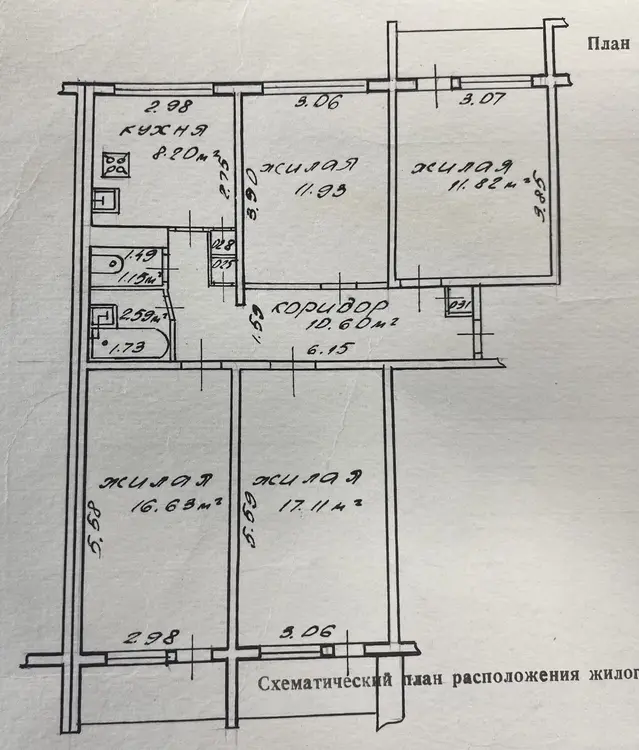 План
2.98
кухня
8.20 м²
2.75
3.06
жилая
11.93
3.90
3.07
жилая
11.82 м²
3.85
0.28
0.25
1.49
1.15 м²
2.59 м²
1.73
коридор
10.60 м²
1.59
6.15
0.31
жилая
16.63 м²
5.58
2.98
жилая
17.11 м²
5.59
3.06
Схематический план расположения жилог